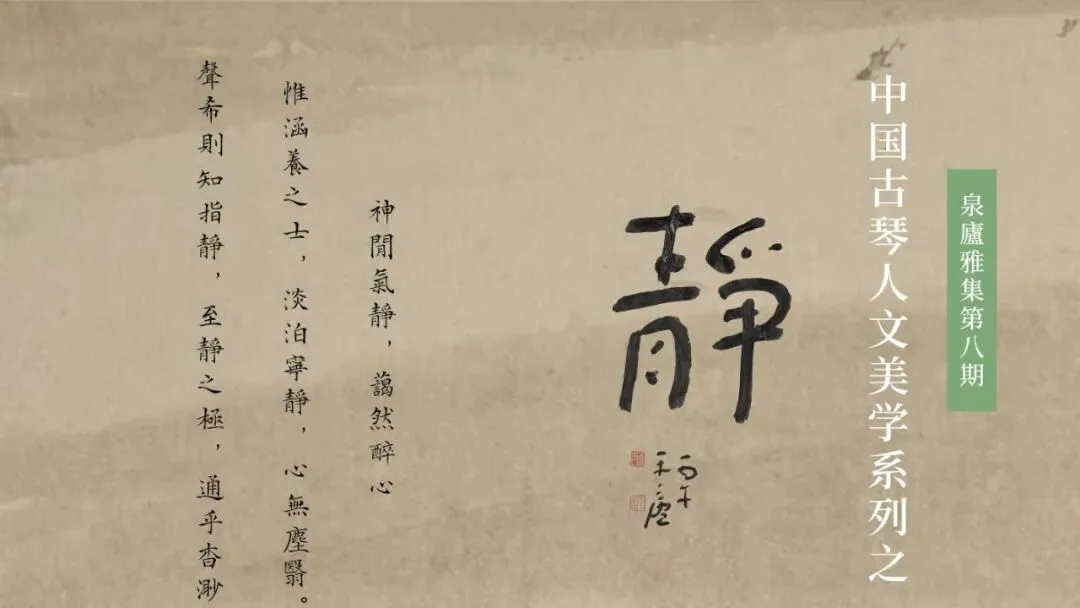 泉廬雅集第八期
中国古琴人文美学系列之
靜
丙午
神閒氣靜，藹然醉心
惟涵養之士，淡泊寧靜，心無塵翳。
聲希則知指靜，至靜之極，通乎杳渺